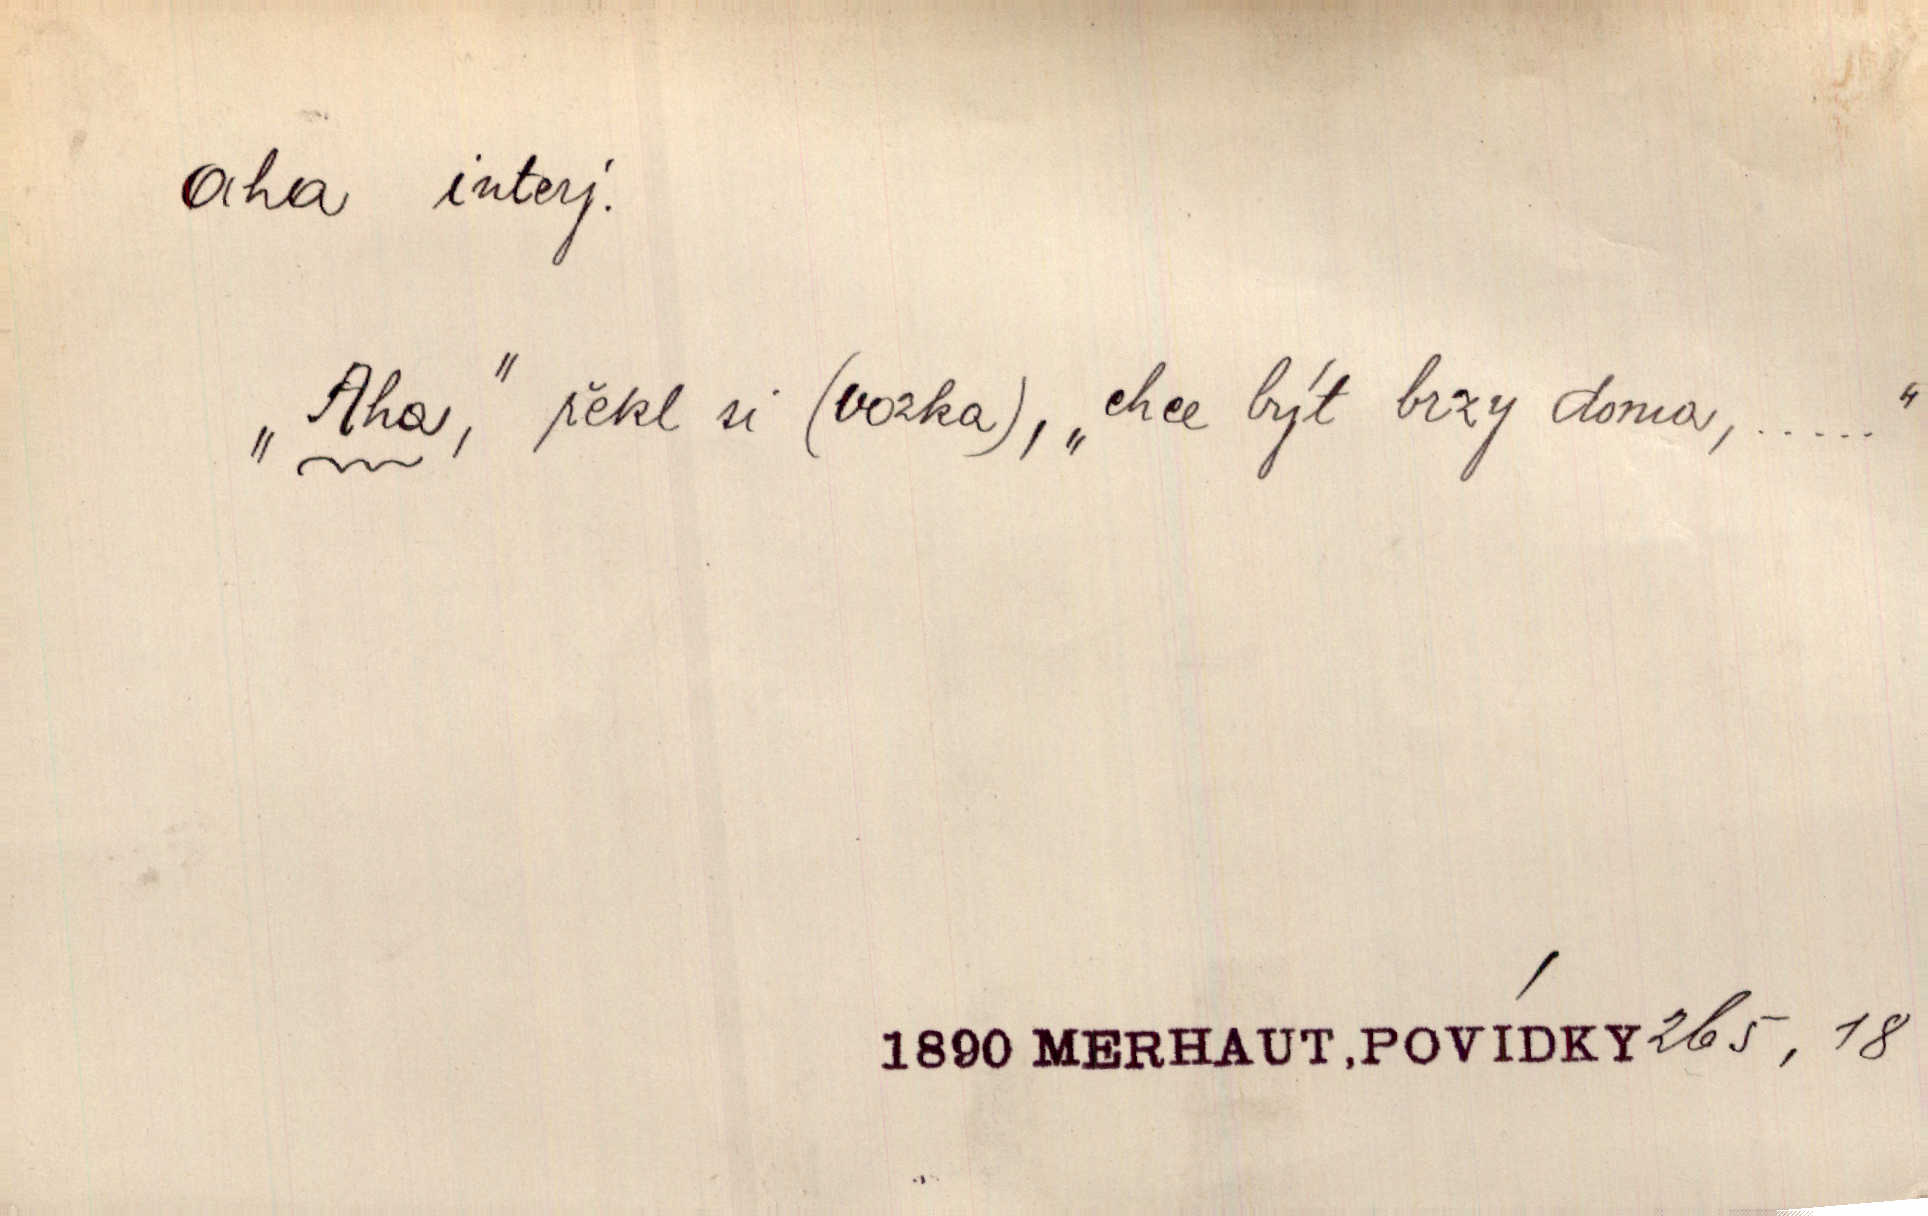 aha interj.
„Aha," řekl si (vozka), „chce být brzy doma, ....."
1890 MERHAUT, POVÍDKY 265, 18